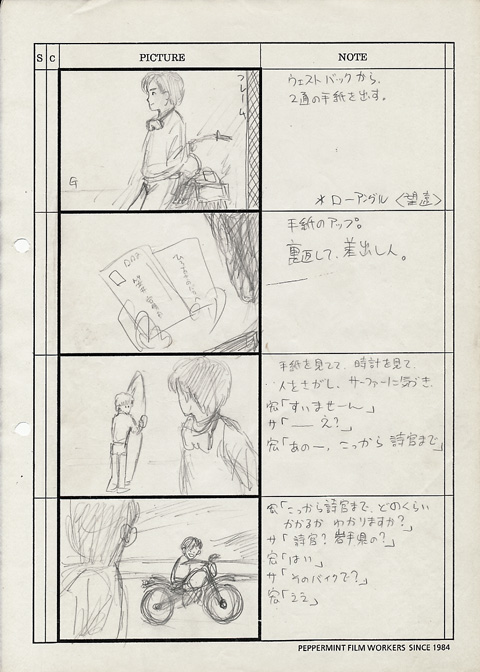 S C PICTURE NOTE
フレーム
ウェストバックから、
2通の手紙を出す。
*ローアングル〈望遠〉
手紙のアップ。
裏返して、差出し人。
手紙を見てて、時計を見て、
人をさがし、サーファーに気づき、
「すいませーん」
サ「―― え?」
「あのー、こっから 諱官まで」
「こっから諱官まで、どのくらい
かかるか わかりますか?」
サ「諱官? 岩手県の?」
「はい」
サ「そのバイクで?」
「ええ」
PEPPERMINT FILM WORKERS SINCE 1984